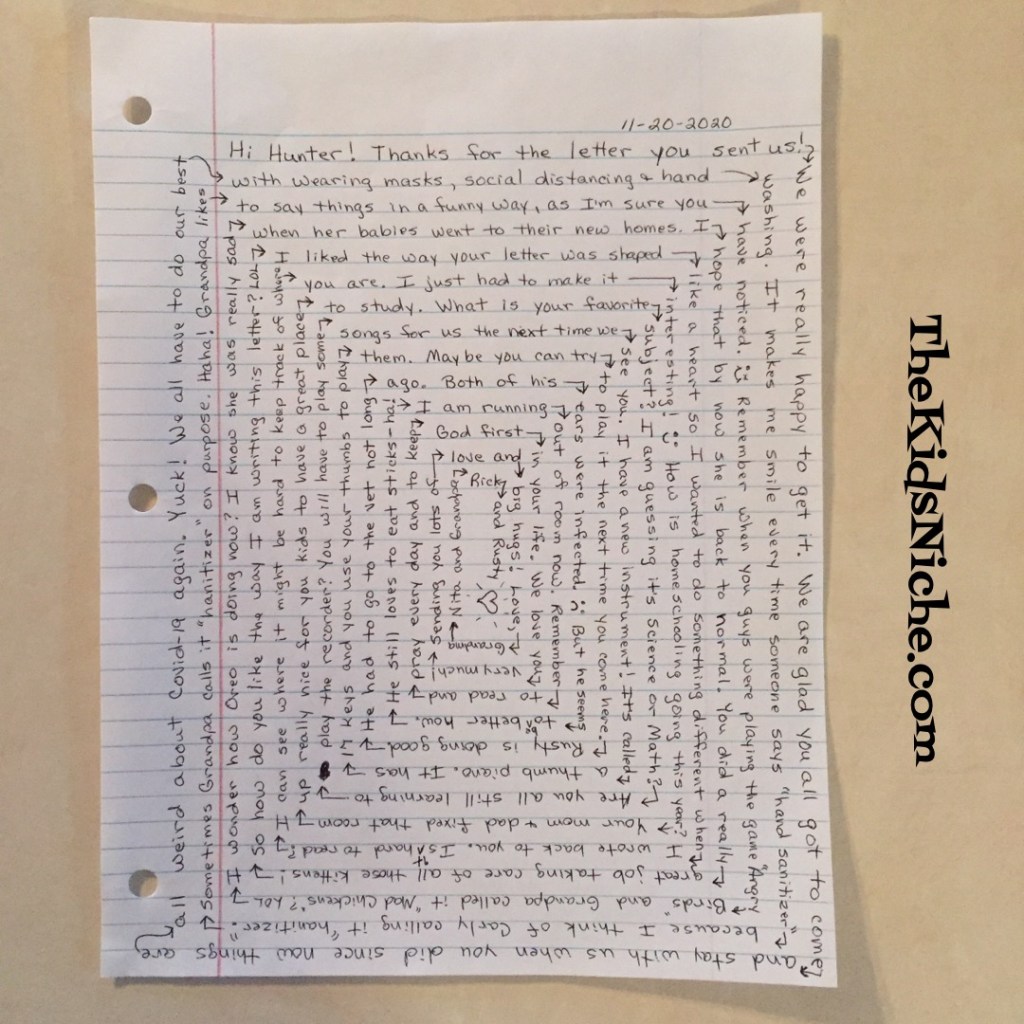 11-20-2020
Hi Hunter! Thanks for the letter you sent us!
We were really happy to get it. We are glad you all got to come
and stay with us when you did since now things are
all weird about Covid-19 again. Yuck! We all have to do our best
with wearing masks, social distancing & hand
washing. It makes me smile every time someone says "hand sanitizer"
because I think of Carly calling it "hanitizer."
Sometimes Grandpa calls it "hanitizer" on purpose. Haha! Grandpa likes
to say things in a funny way, as I'm sure you
have noticed. :) Remember when you guys were playing the game "Angry
Birds" and Grandpa called it "Mad Chickens"? LOL
I wonder how Oreo is doing now? I know she was really sad
when her babies went to their new homes. I
hope that by now she is back to normal. You did a really
great job taking care of all those kittens!
So how do you like the way I am writing this letter? LOL
I liked the way your letter was shaped
like a heart so I wanted to do something different when
I wrote back to you. Is it hard to read?
I can see where it might be hard to keep track of where
you are. I just had to make it
interesting! :) How is homeschooling going this year?
Your mom + dad fixed that room
up really nice for you kids to have a great place
to study. What is your favorite
subject? I am guessing it's Science or Math?
Are you all still learning to
play the recorder? You will have to play some
songs for us the next time we
see you. I have a new instrument! It's called
a thumb piano. It has
17 keys and you use your thumbs to play
them. Maybe you can try
to play it the next time you come here.
Rusty is doing good.
He had to go to the vet not long
ago. Both of his
ears were infected. :( But he seems
to be better now.
He still loves to eat sticks-ha!
I am running
out of room now. Remember
to read and
pray every day and to keep
God first
in your life. We love you
very much!
Sending you lots of
love and
big hugs! Love,
Grandma
Nita and Grandpa
Rick
and Rusty
TheKidsNiche.com